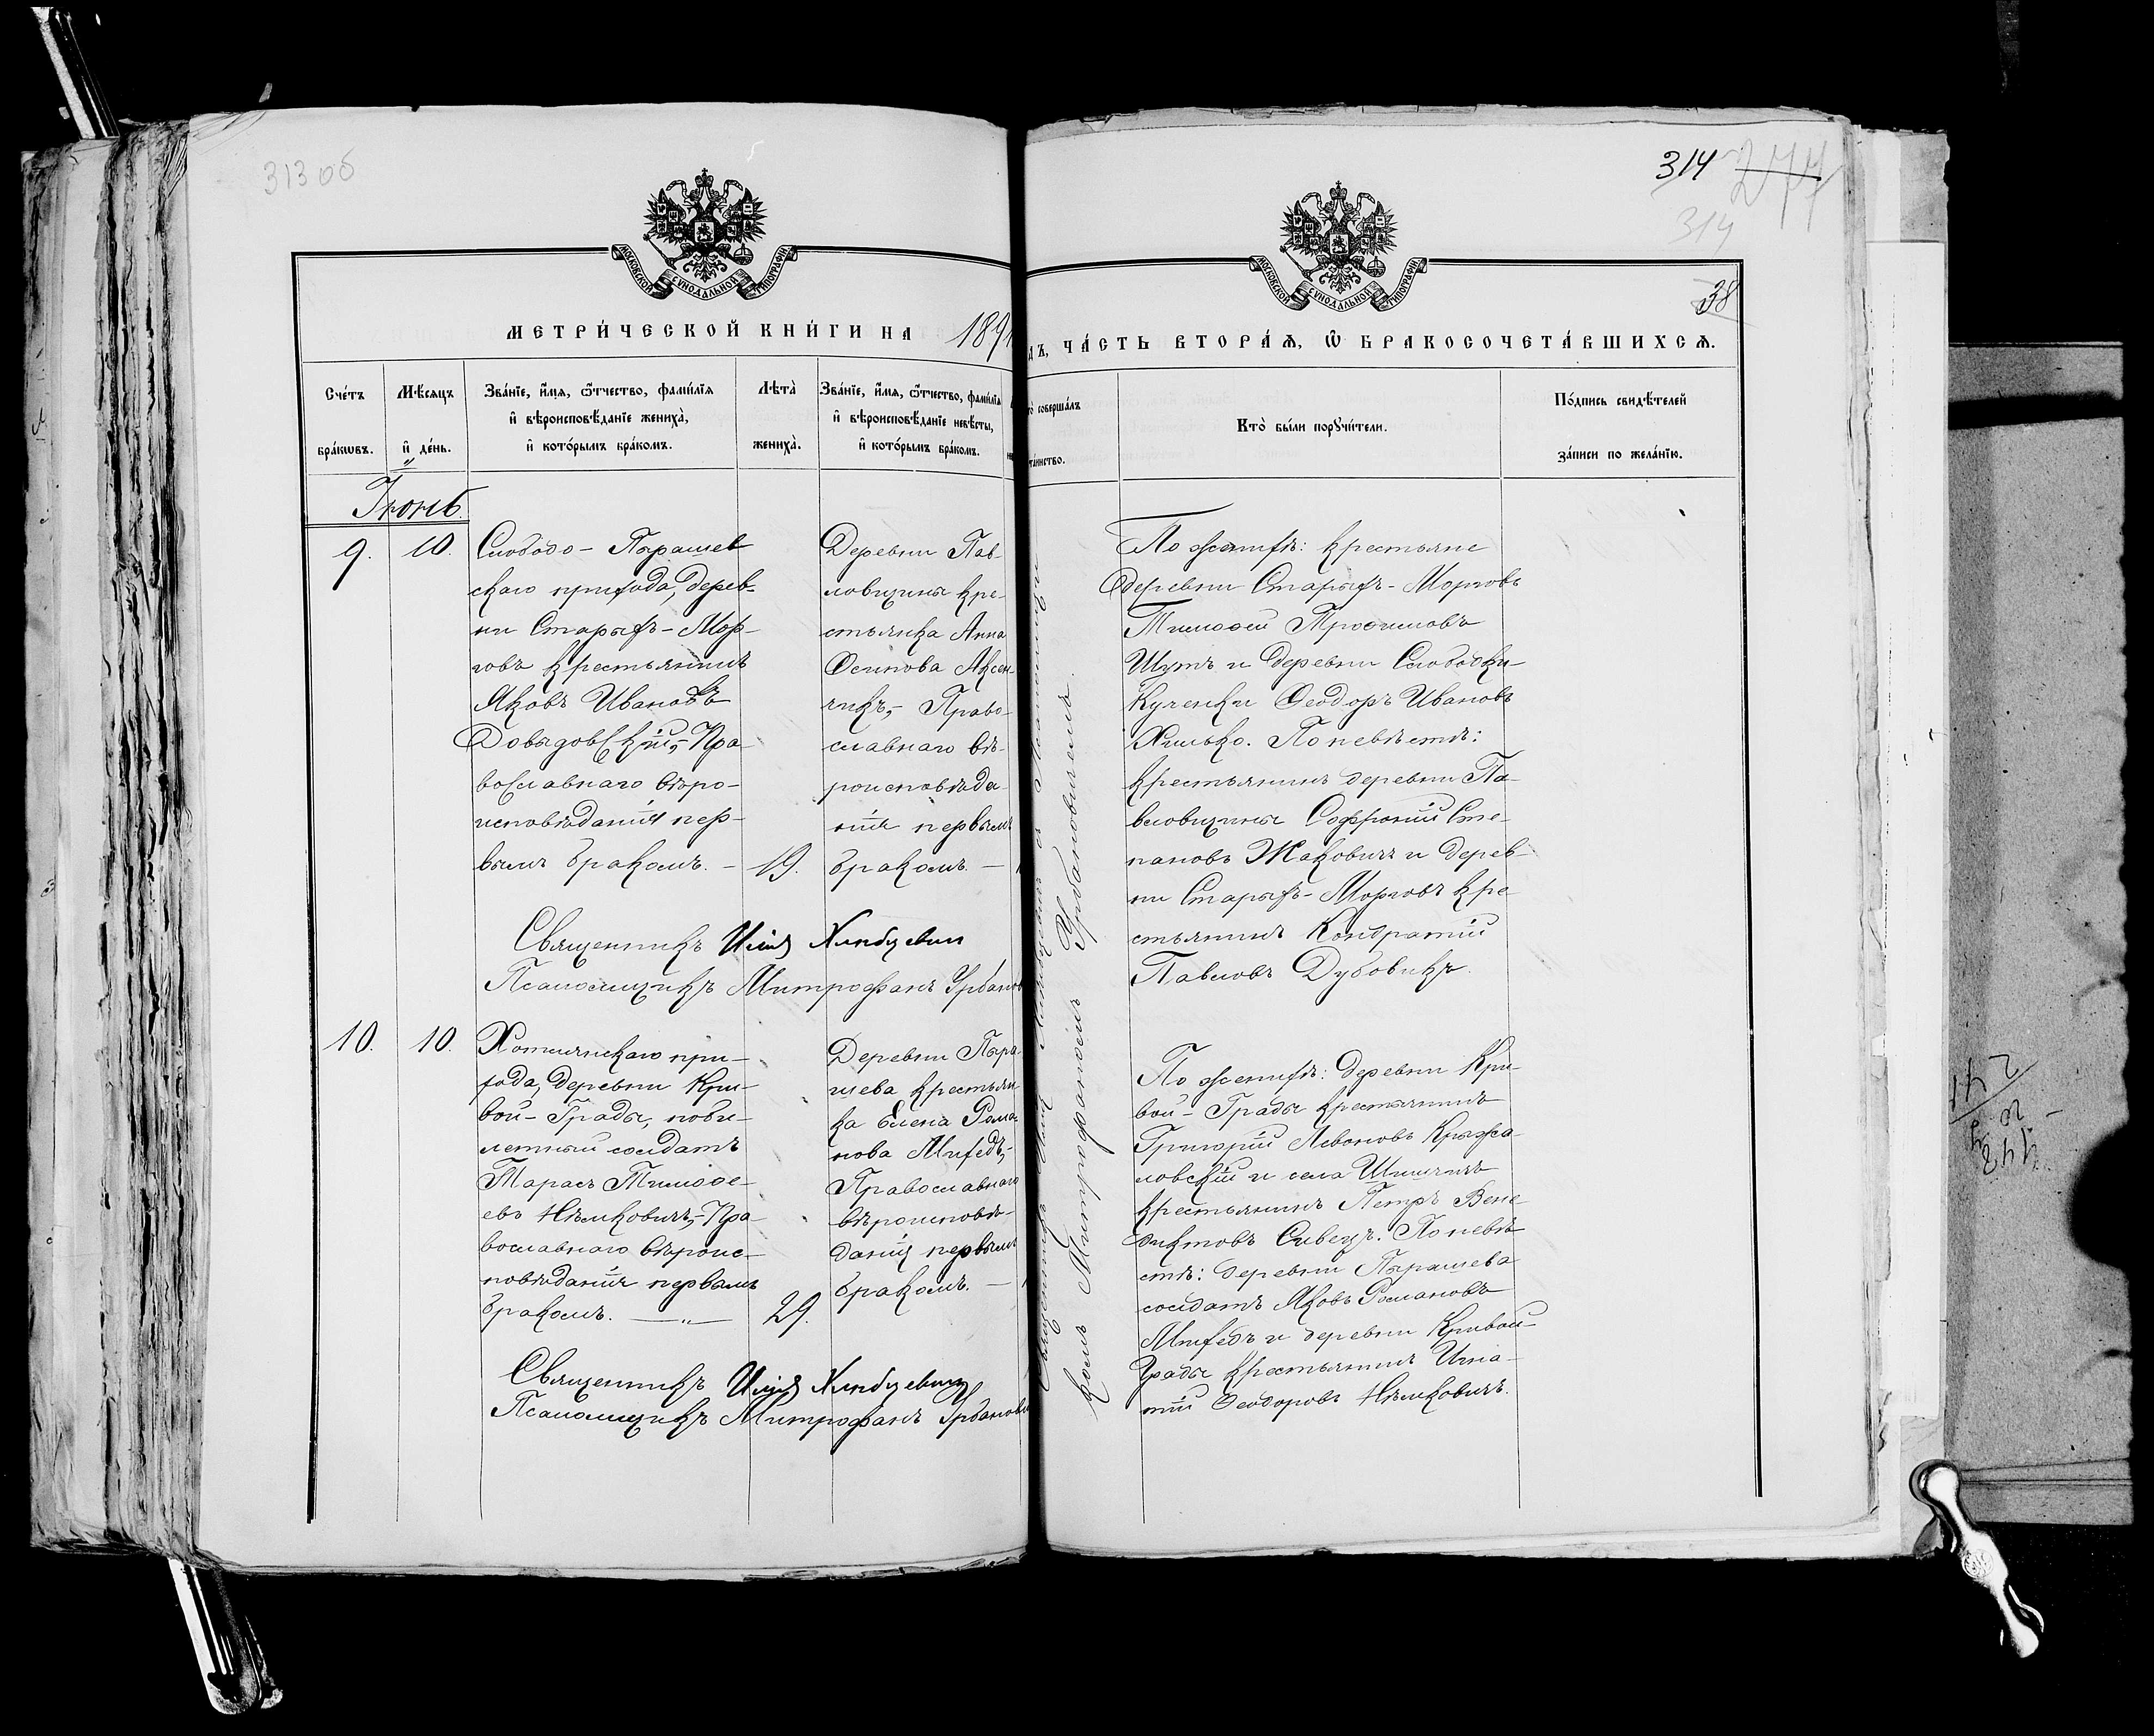 313 об
314 274
314
38
МОСКОВСКОЙ СѴНОДАЛЬНОЙ ТИПОГРАФІИ
МОСКОВСКОЙ СѴНОДАЛЬНОЙ ТИПОГРАФІИ
МЕТРИ́ЧЕСКОЙ КНИ́ГИ НА 189
ЧА́СТЬ ВТОРА́Ѧ, Ѽ БРАКОСОЧЕТА́ВШИХСѦ.
Сче́тъ бра́кѡвъ.
Мѣ́сѧцъ и҆ де́нь.
Зва́нїе, и҆́мѧ, ѻ҆́тчество, фами́лїѧ
и҆ вѣроисповѣ́данїе жениха̀,
и҆ кото́рымъ бра́комъ.
Лѣта̀ жениха̀.
Зва́нїе, и҆́мѧ, ѻ҆́тчество, фами́лїѧ
и҆ вѣроисповѣ́данїе невѣ́сты,
и҆ кото́рымъ бра́комъ.
соверша́лъ
та́инство.
Кто̀ бы́ли порꙋчи́тели.
По́дпись свидѣ́телей
за́писи по жела́нїю.
Іюнь.
9.
10.
Слободо-Пырашев
скаго прихода, дерев-
ни Старыхъ-Мор-
говъ крестьянинъ
Яковъ Ивановъ
Довыдовскій,-Пра
вославнаго вѣро-
исповѣданія пер-
вымъ бракомъ. -
19.
Деревни Пав-
ловщины кре-
стьянка Анна
Осипова Аксен-
чикъ,- Право-
славнаго вѣ-
роисповѣда-
нія первымъ
бракомъ. -
По женихѣ: крестьяне
деревни Старыхъ-Морговъ
Тимофей Трофимовъ
Шутъ и деревни Слободки-
Кученки Феодоръ Ивановъ
Хилько. По невѣстѣ:
крестьянинъ деревни Па-
вловщины Софроній Сте-
пановъ Жаковичъ и дерев-
ни Старыхъ-Морговъ кре
стьянинъ Кондратій
Павловъ Дубовикъ.
Священникъ Илія
Псаломщикъ Митрофанъ Урбанов
10.
10.
Хотлянскаго при-
хода, деревни Кри-
вой-Грады, поби-
летный солдатъ
Тарасъ Тимофе-
евъ Нѣмковичъ,-Пра
вославнаго вѣроис-
повѣданія первымъ
бракомъ. — „ —
29.
Деревни Пыра
шева крестьян
ка Елена Рома
нова Михедъ,-
Православнаго
вѣроисповѣ-
данія первымъ
бракомъ. —
По женихѣ: деревни Кри-
вой-Грады крестьянинъ
Григорій Левоновъ Крыжа-
ловскій и села Шищичъ
крестьянинъ Петръ Вене
диктовъ Сивецъ. По невѣ
стѣ: деревни Пырашева
солдатъ Яковъ Романовъ
Михедъ и деревни Кривой-
Грады крестьянинъ Игна-
тій Феодоровъ Нѣмковичъ.
Священникъ Илія
Псаломщикъ Митрофанъ Урбанови
комъ Митрофаномъ Урбановичемъ.